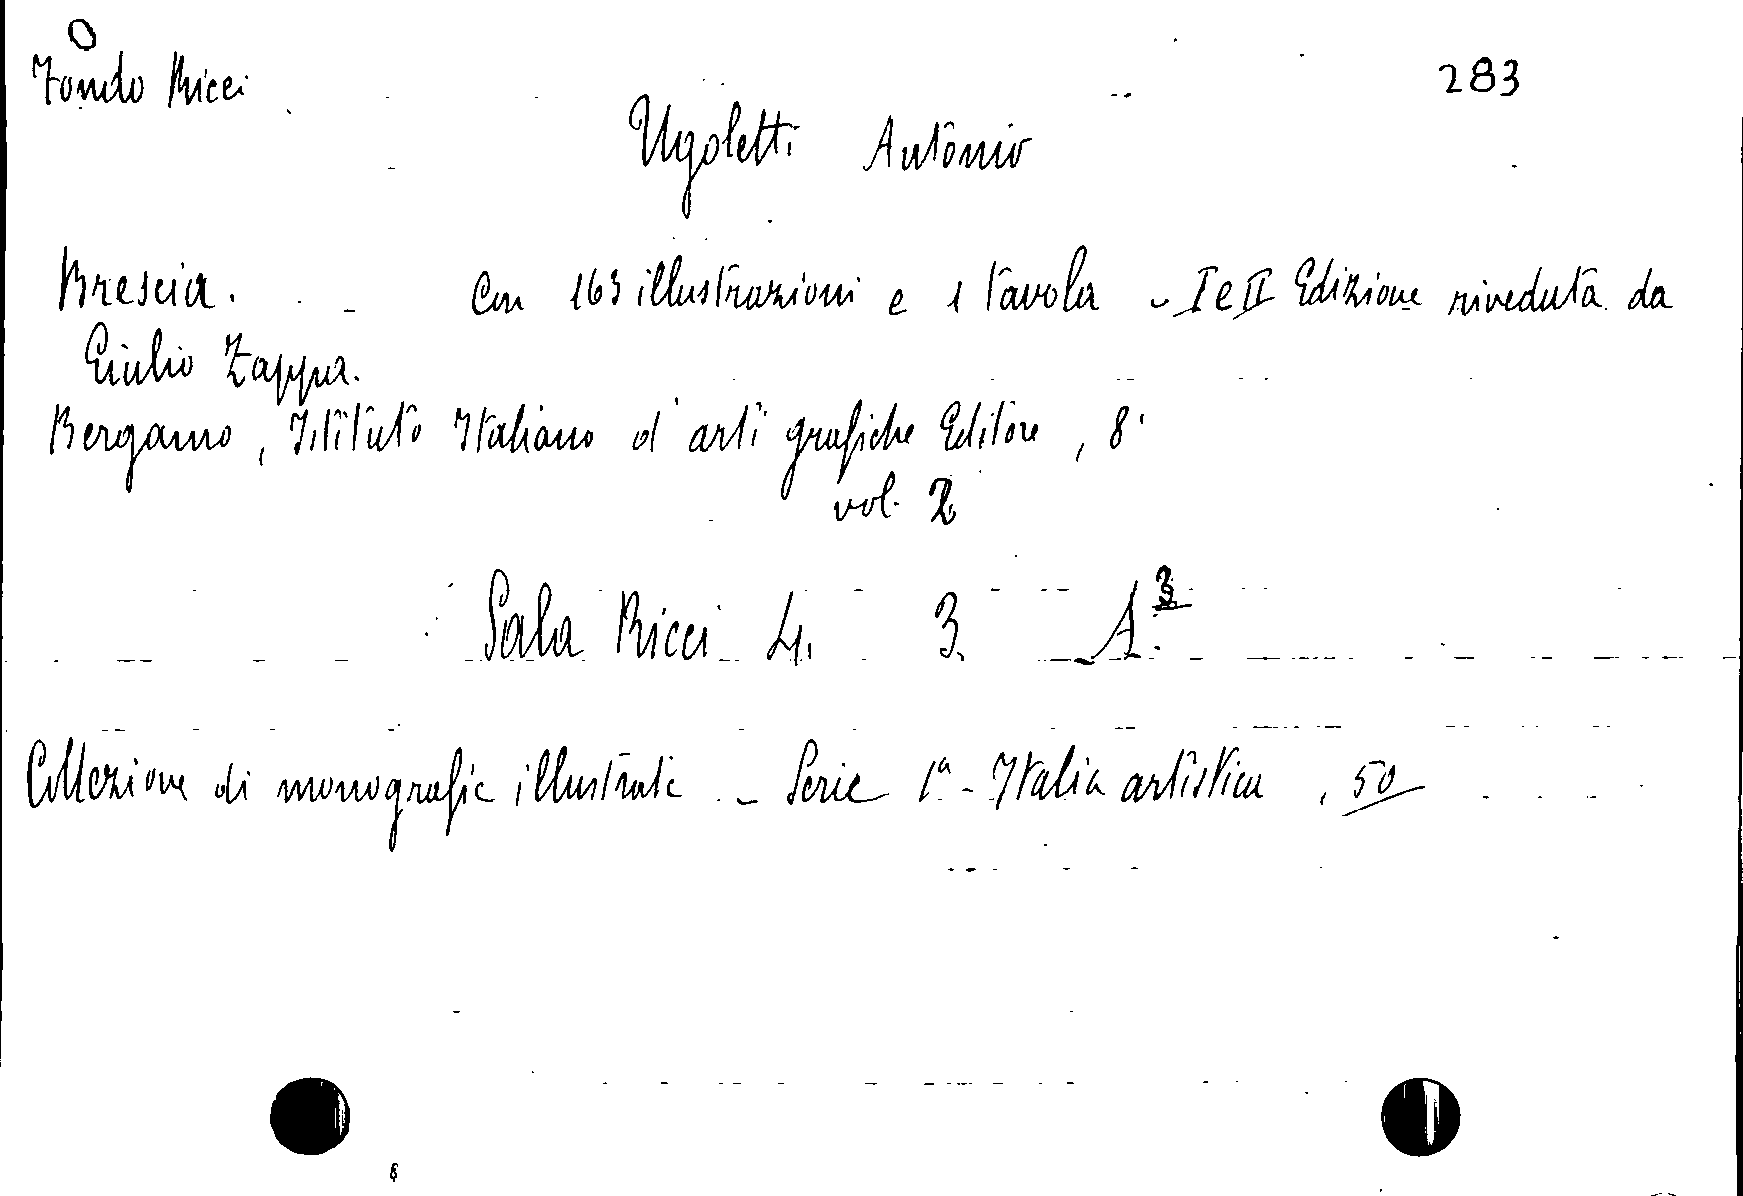 Fondo Ricci
283
Ugoletti Antonio
Brescia. - Con 163 illustrazioni e 1 tavola - I e II Edizione riveduta da
Giulio Zappa.
Bergamo, Istituto Italiano d'arti grafiche Editore, 8°
vol. 2
Sala Ricci 4. 3. A.3
Collezione di monografie illustrate - Serie 1ª - Italia artistica, 50